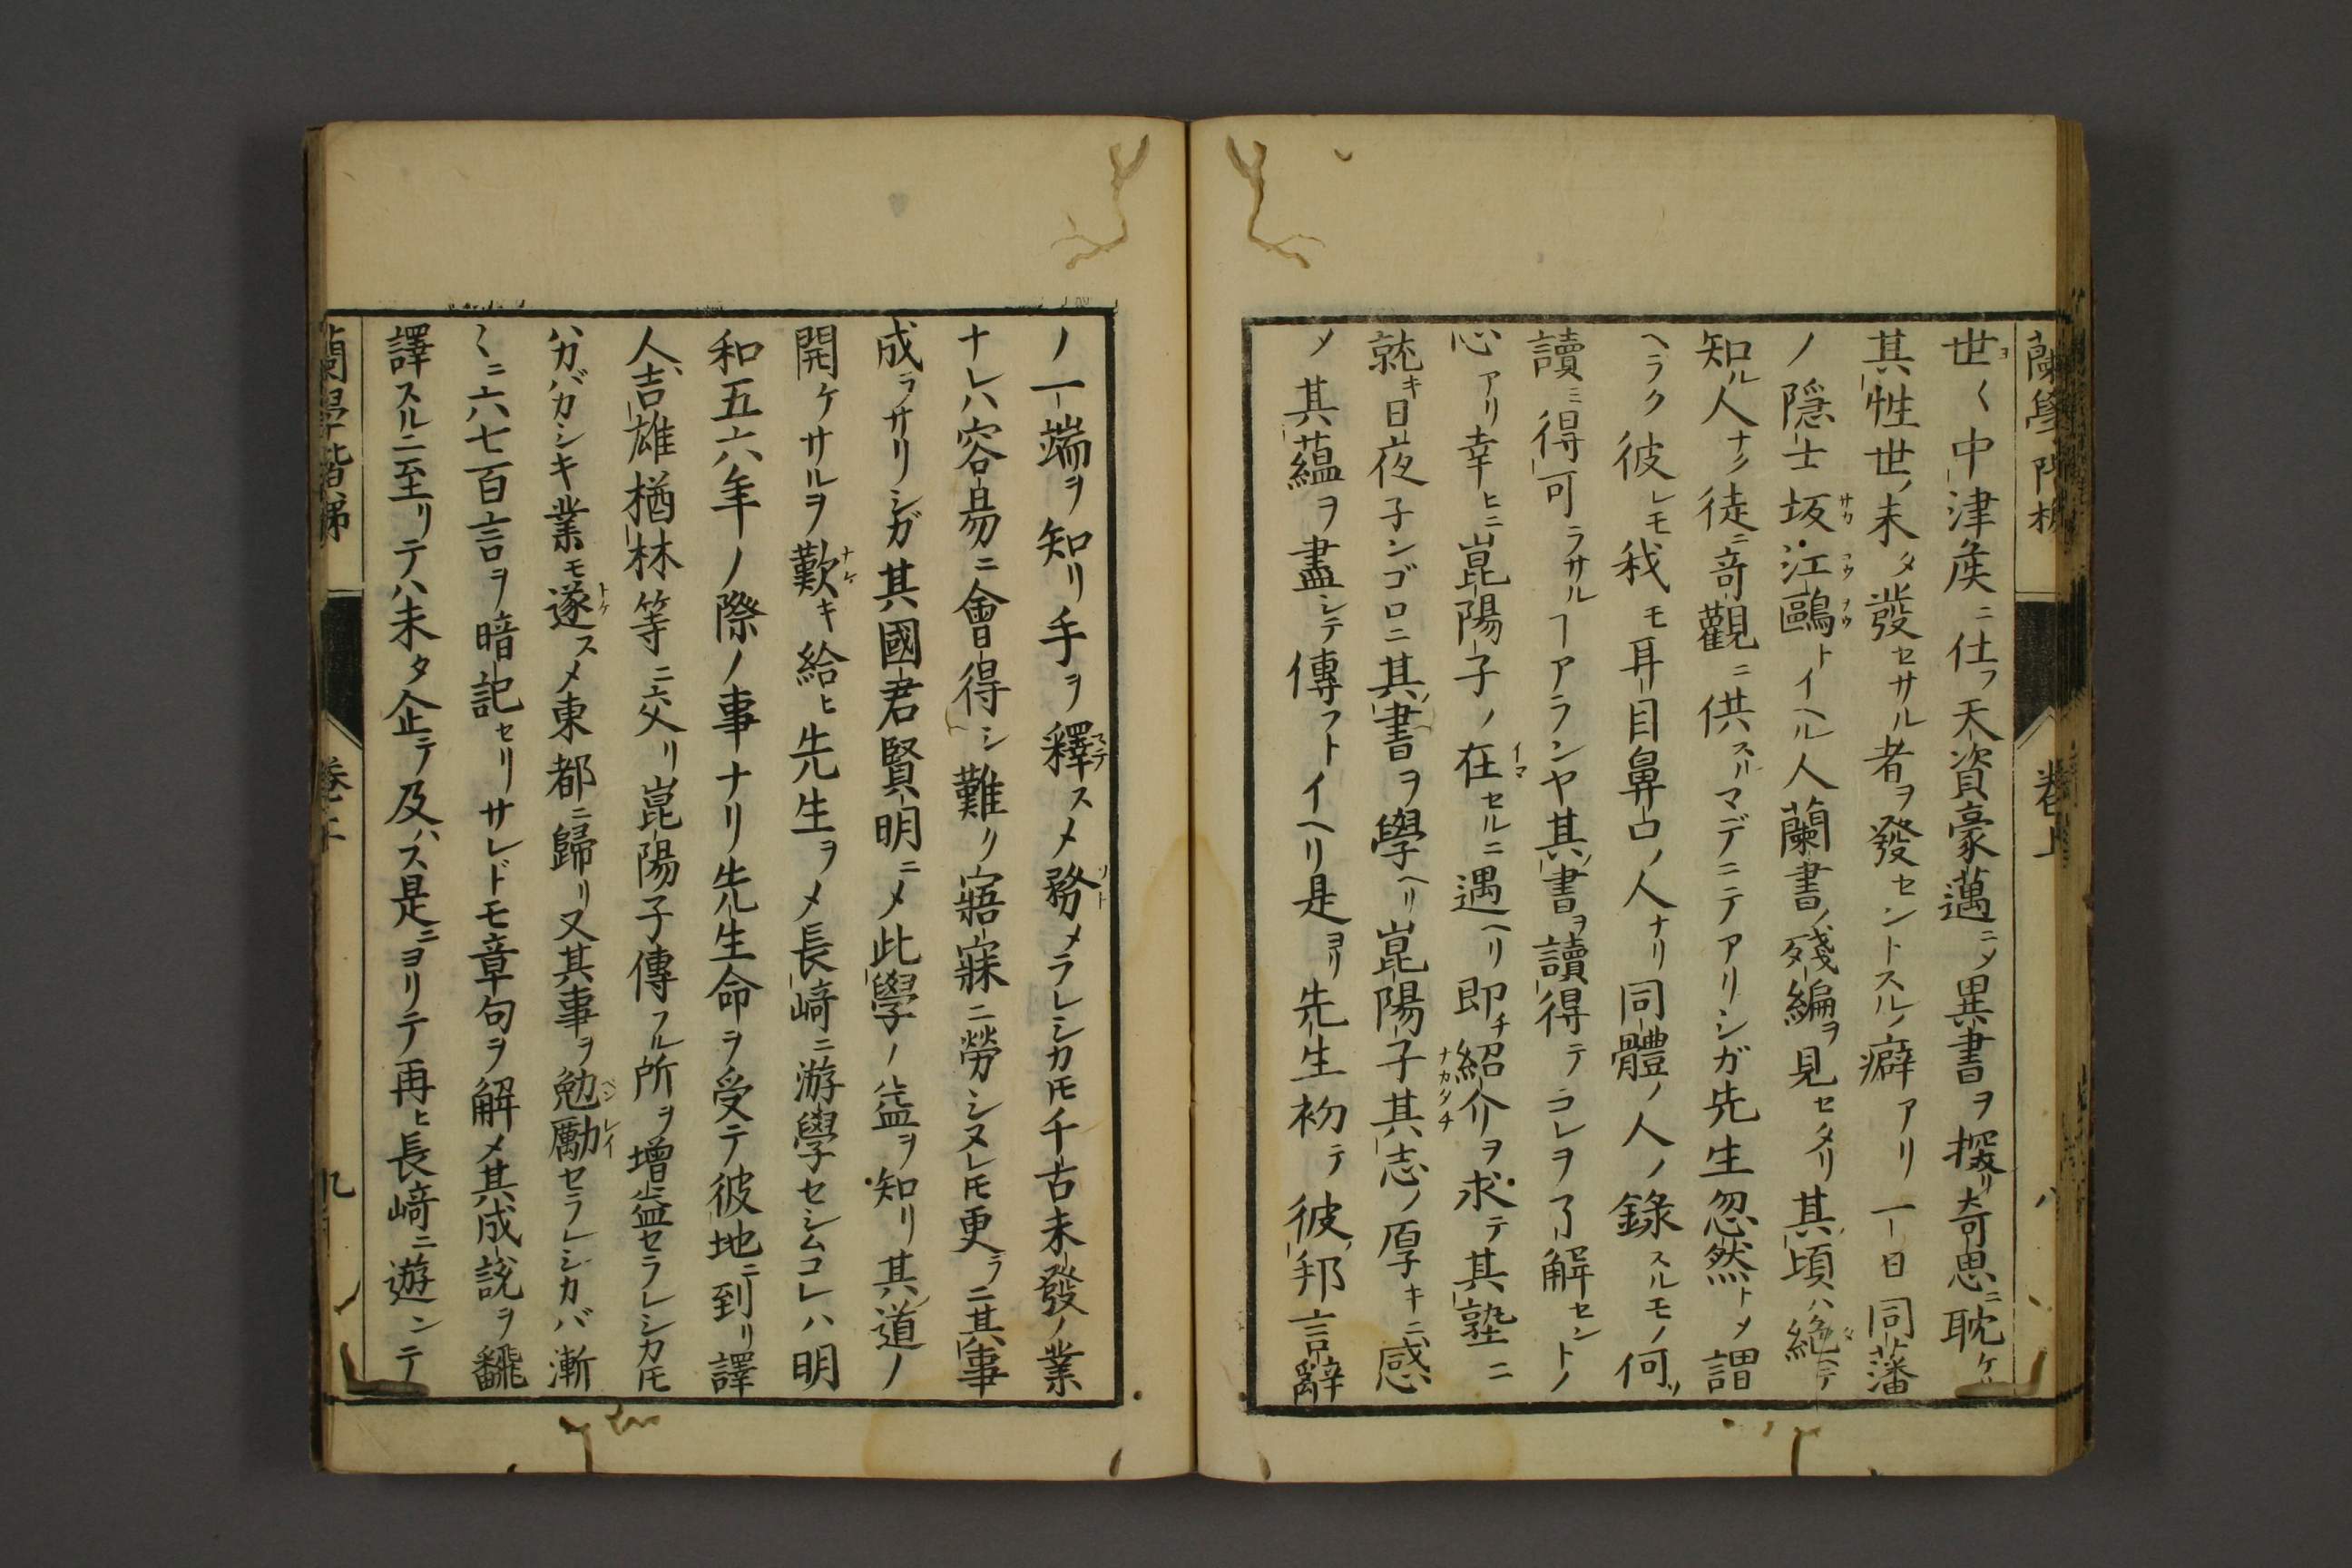 蘭學階梯 卷上 八
世〱中津矦ニ仕フ天資豪邁ニ〆異書ヲ探リ奇思ニ耽ケリ
其性世ノ未タ發セサル者ヲ發セントスルノ癖アリ一日同藩
ノ隱士坂江鷗トイヘル人蘭書ノ殘編ヲ見セタリ其頃ハ絶ヘテ
知ル人ナク徒ニ奇觀ニ供スルマデニテアリシガ先生忽然ト〆謂
ヘラク彼レモ我モ耳目鼻口ノ人ナリ同體ノ人ノ錄スルモノ何ソ
讀ミ得可ラサルヿアランヤ其書ヲ讀得テコレヲ了解セントノ
心アリ幸ヒニ崑陽子ノ在セルニ遇ヘリ即チ紹介ヲ求テ其塾ニ
就キ日夜子ンゴロニ其書ヲ學ヘリ崑陽子其志ノ厚キニ感
〆其蘊ヲ盡シテ傳フトイヘリ是ヨリ先生初テ彼邦言辭
ノ一端ヲ知リ手ヲ釋ス〆務メラレシカ𪜈千古未發ノ業
ナレハ容易ニ會得シ難ク寤寐ニ勞シヌレ𪜈更ラニ其事
成ラサリシガ其國君賢明ニ〆此學ノ益ヲ知リ其道ノ
開ケサルヲ歎キ給ヒ先生ヲ〆長﨑ニ游學セシムコレハ明
和五六年ノ際ノ事ナリ先生命ヲ受テ彼地ニ到リ譯
人吉雄楢林等ニ交リ崑陽子傳フル所ヲ增益セラレシカ𪜈
ハカバカシキ業モ遂ス〆東都ニ歸リ又其事ヲ勉勵セラレシカバ漸
〱ニ六七百言ヲ暗記セリサレドモ章句ヲ解〆其成說ヲ飜
譯スルニ至リテハ未タ企テ及ハス是ニヨリテ再ヒ長﨑ニ遊ンテ
蘭學階梯 卷上 九